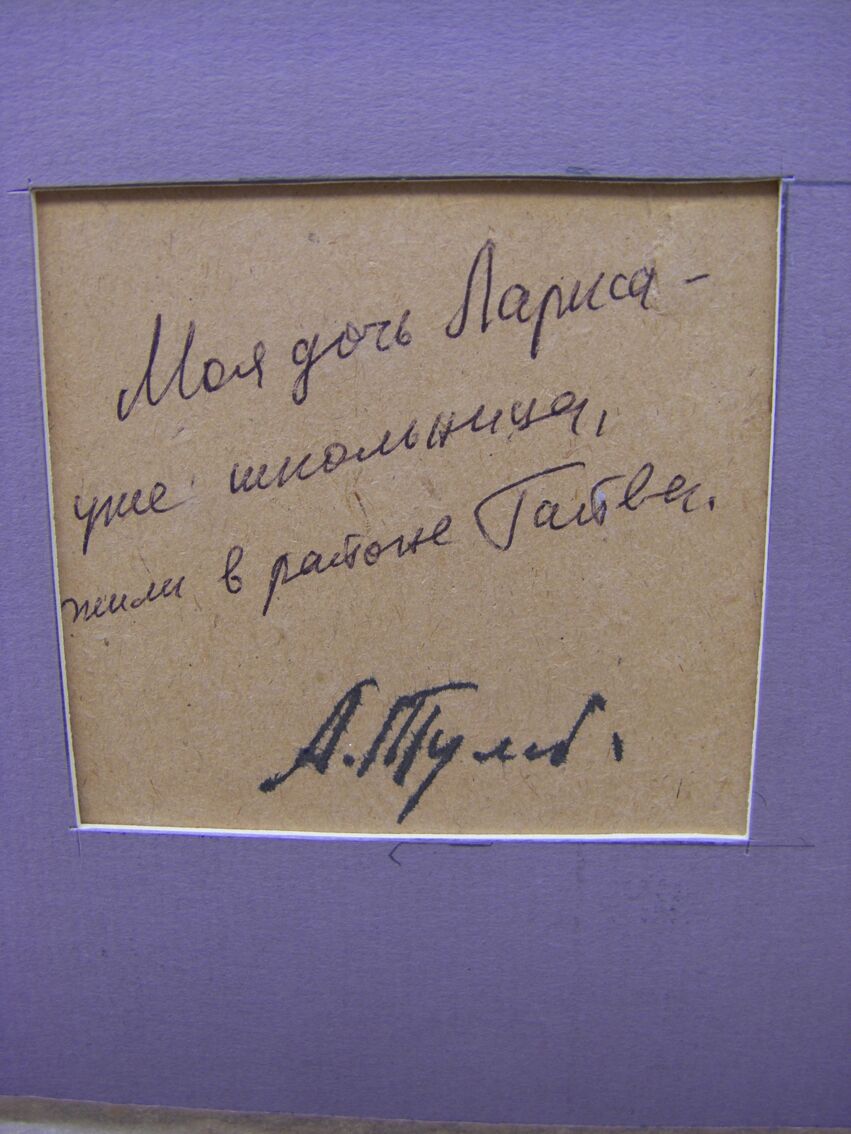 Моя дочь Лариса -
уже школьница,
жили в районе Гайва.
А. Тумб.